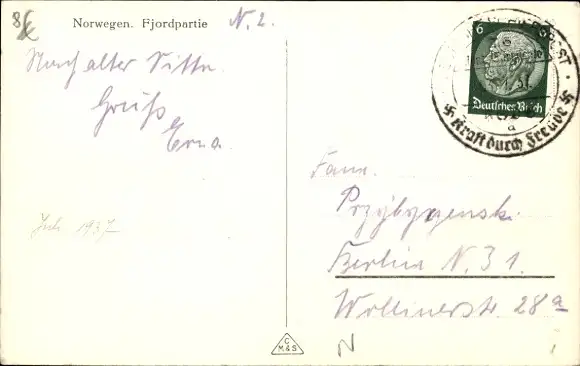 8€
Norwegen. Fjordpartie
N. 2.
Nach alter Sitte
Gruß
Erna.
Juli 1937
6
Deutsches Reich
Kraft durch Freude
a
Fam.
Przybyzenski.
Berlin N. 31.
Wollinerstr. 28a
N
C
M&S